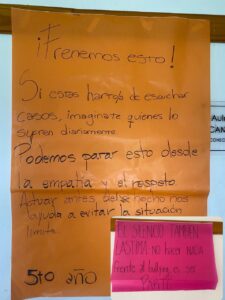 ¡Frenemos esto!
Si estas harto/a de escuchar
casos, imaginate quienes lo
sufren diariamente.
Podemos parar esto desde
la empatía y el respeto.
Actuar antes del hecho nos
ayuda a evitar la situación
limite.
5to año
Aula
CAN
EL SILENCIO TAMBIEN
LASTIMA no hacer NADA
frente al bullying es se